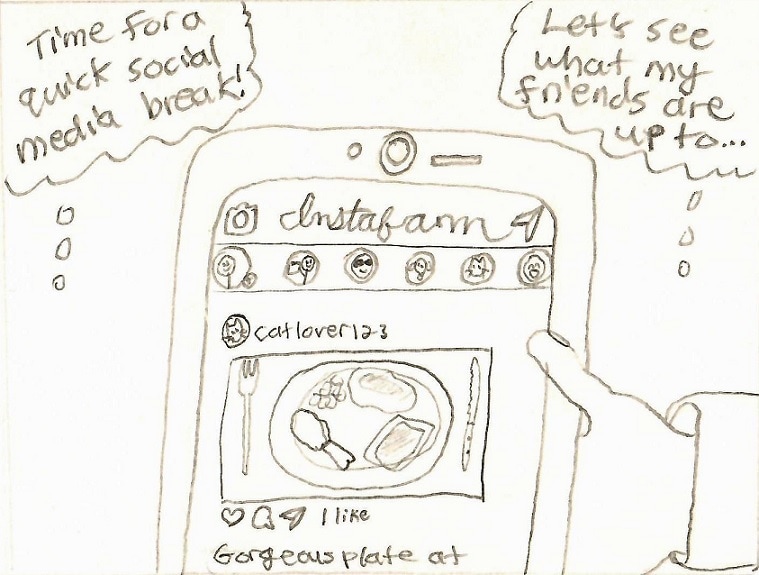 Time for a
quick social
media break!
Let's see
what my
friends are
up to...
Instafarm
catlover123
1 like
Gorgeous plate at